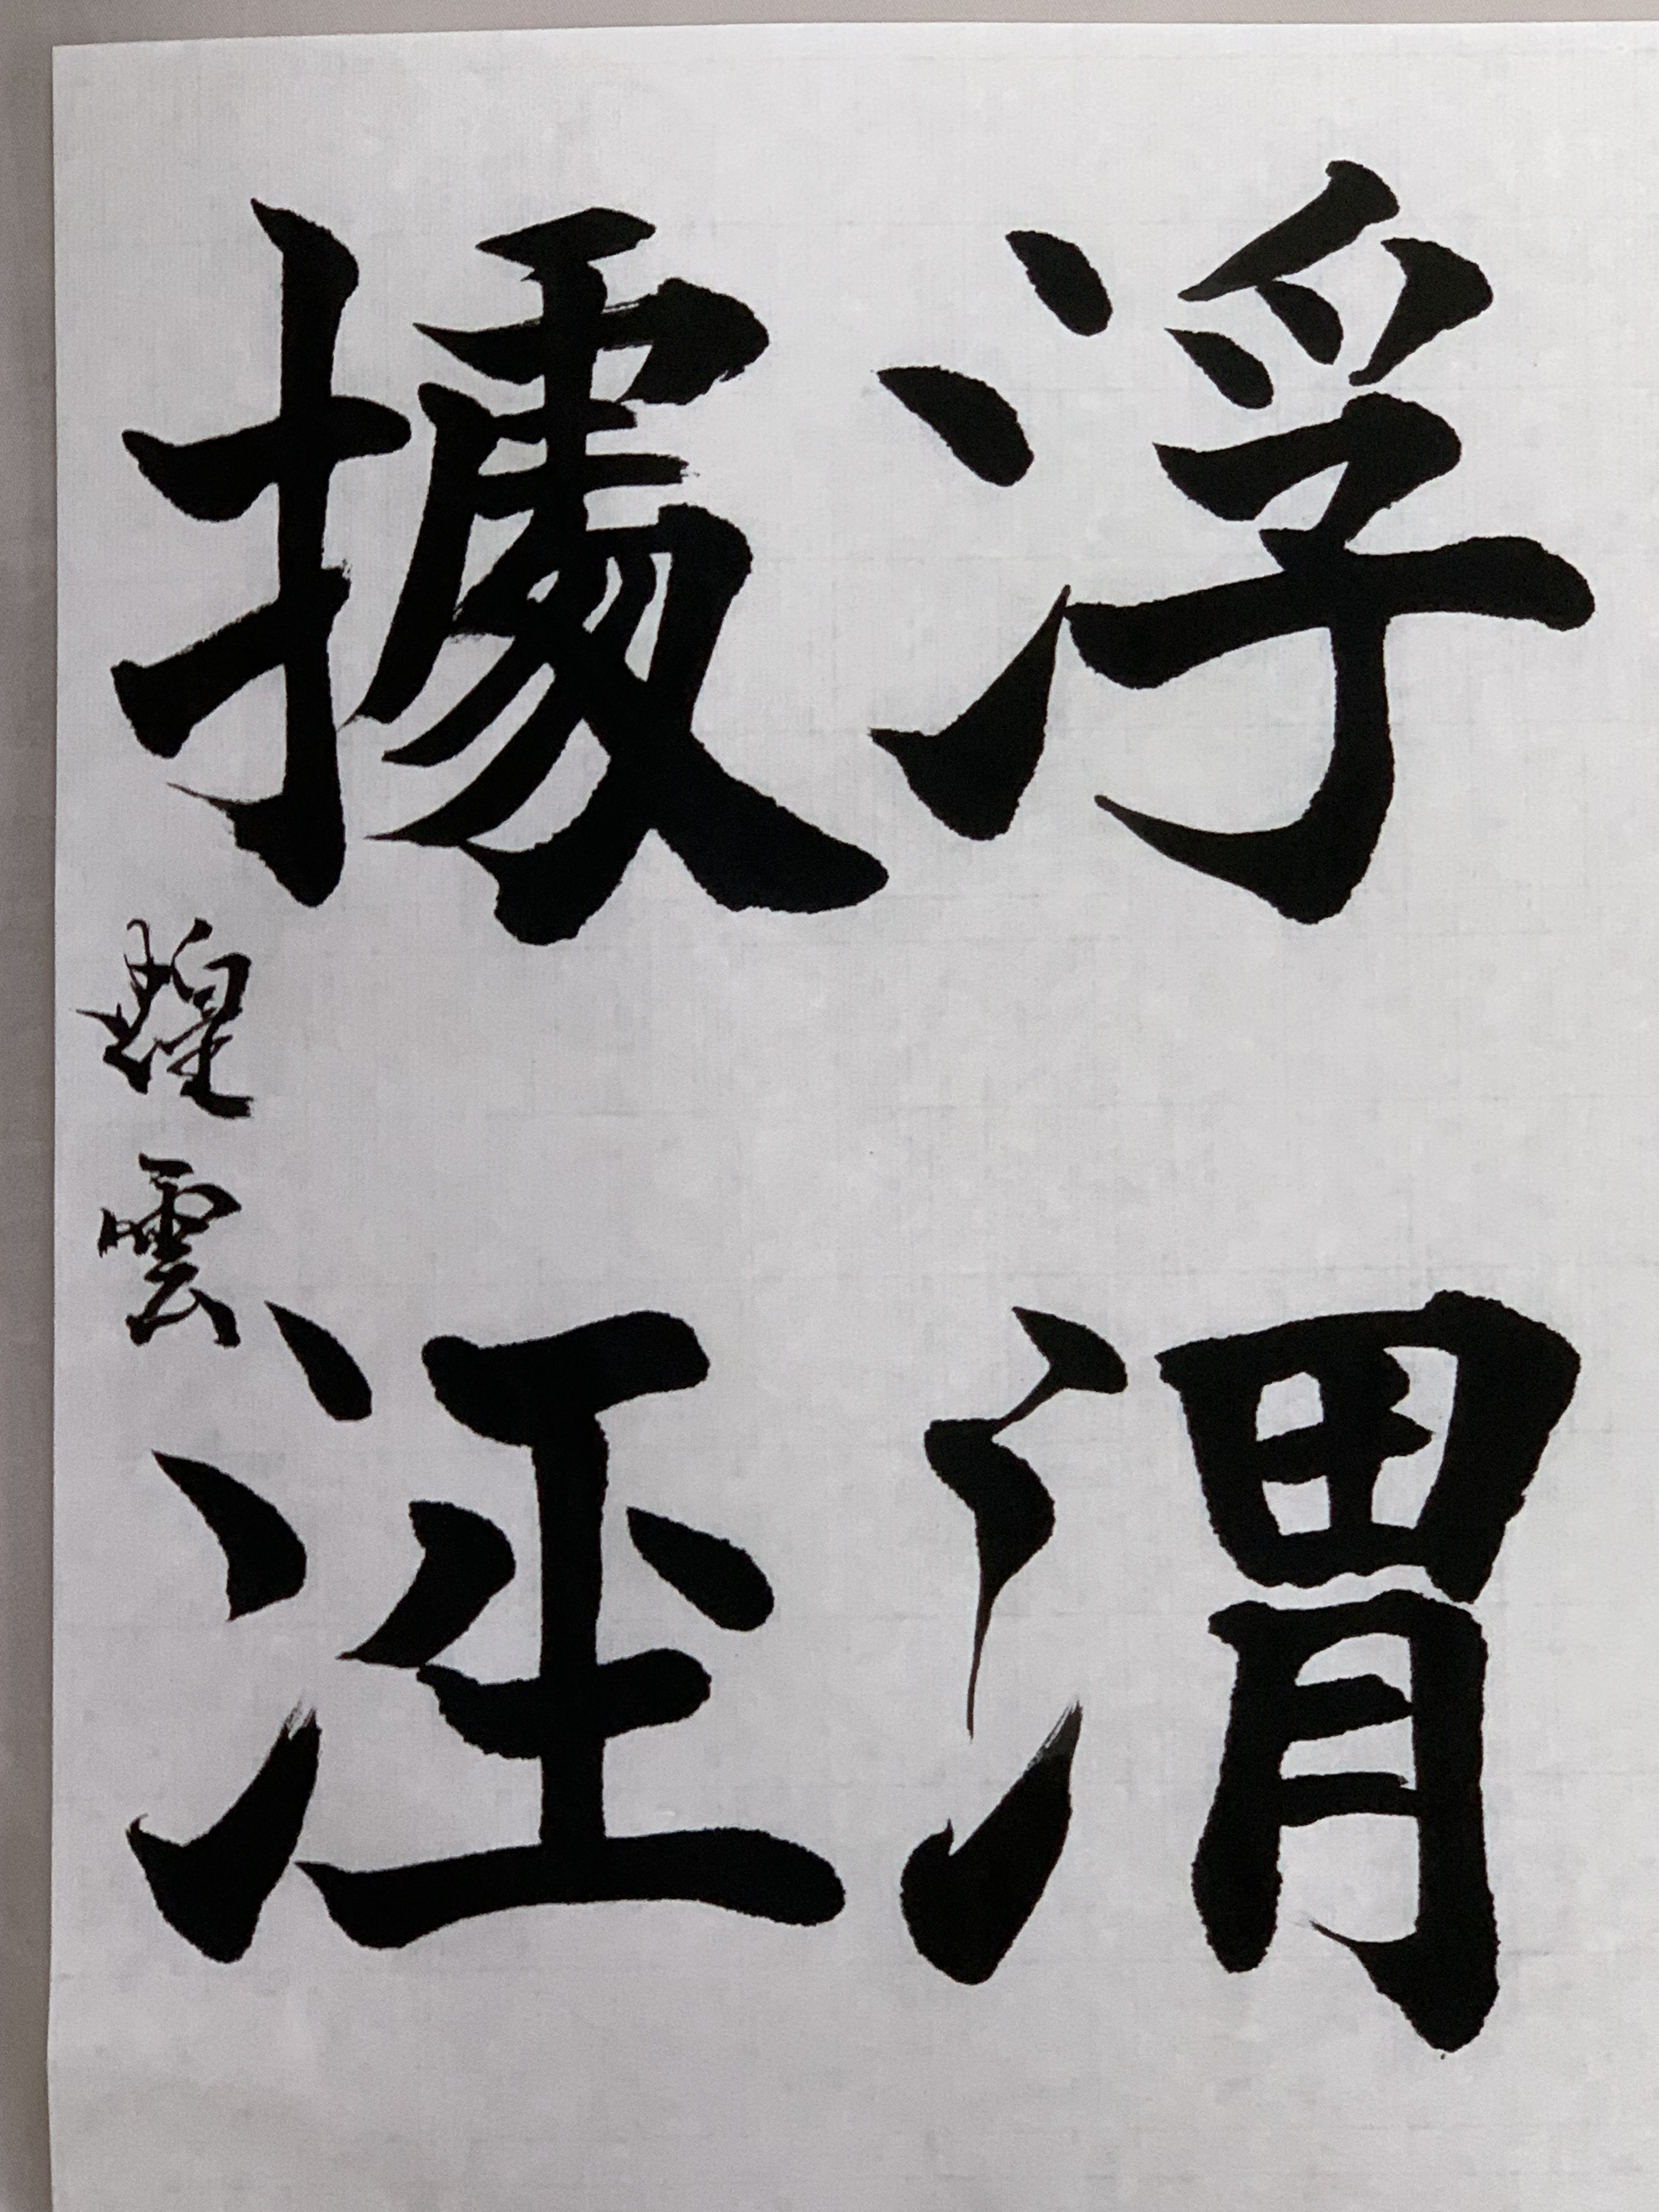 浮渭
據涇
煌雲